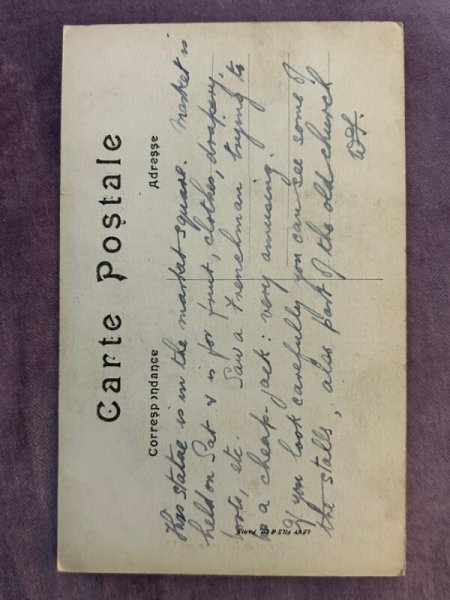 Carte Postale
Correspondance
Adresse
This statue is in the market square. Market is
held on Sat & is for fruit, clothes, drapery,
boots, etc. Saw a Frenchman trying to
be a cheap-jack: very amusing.
If you look carefully you can see some of
the stalls, also part of the old church
LEVY FILS & Cie PARIS